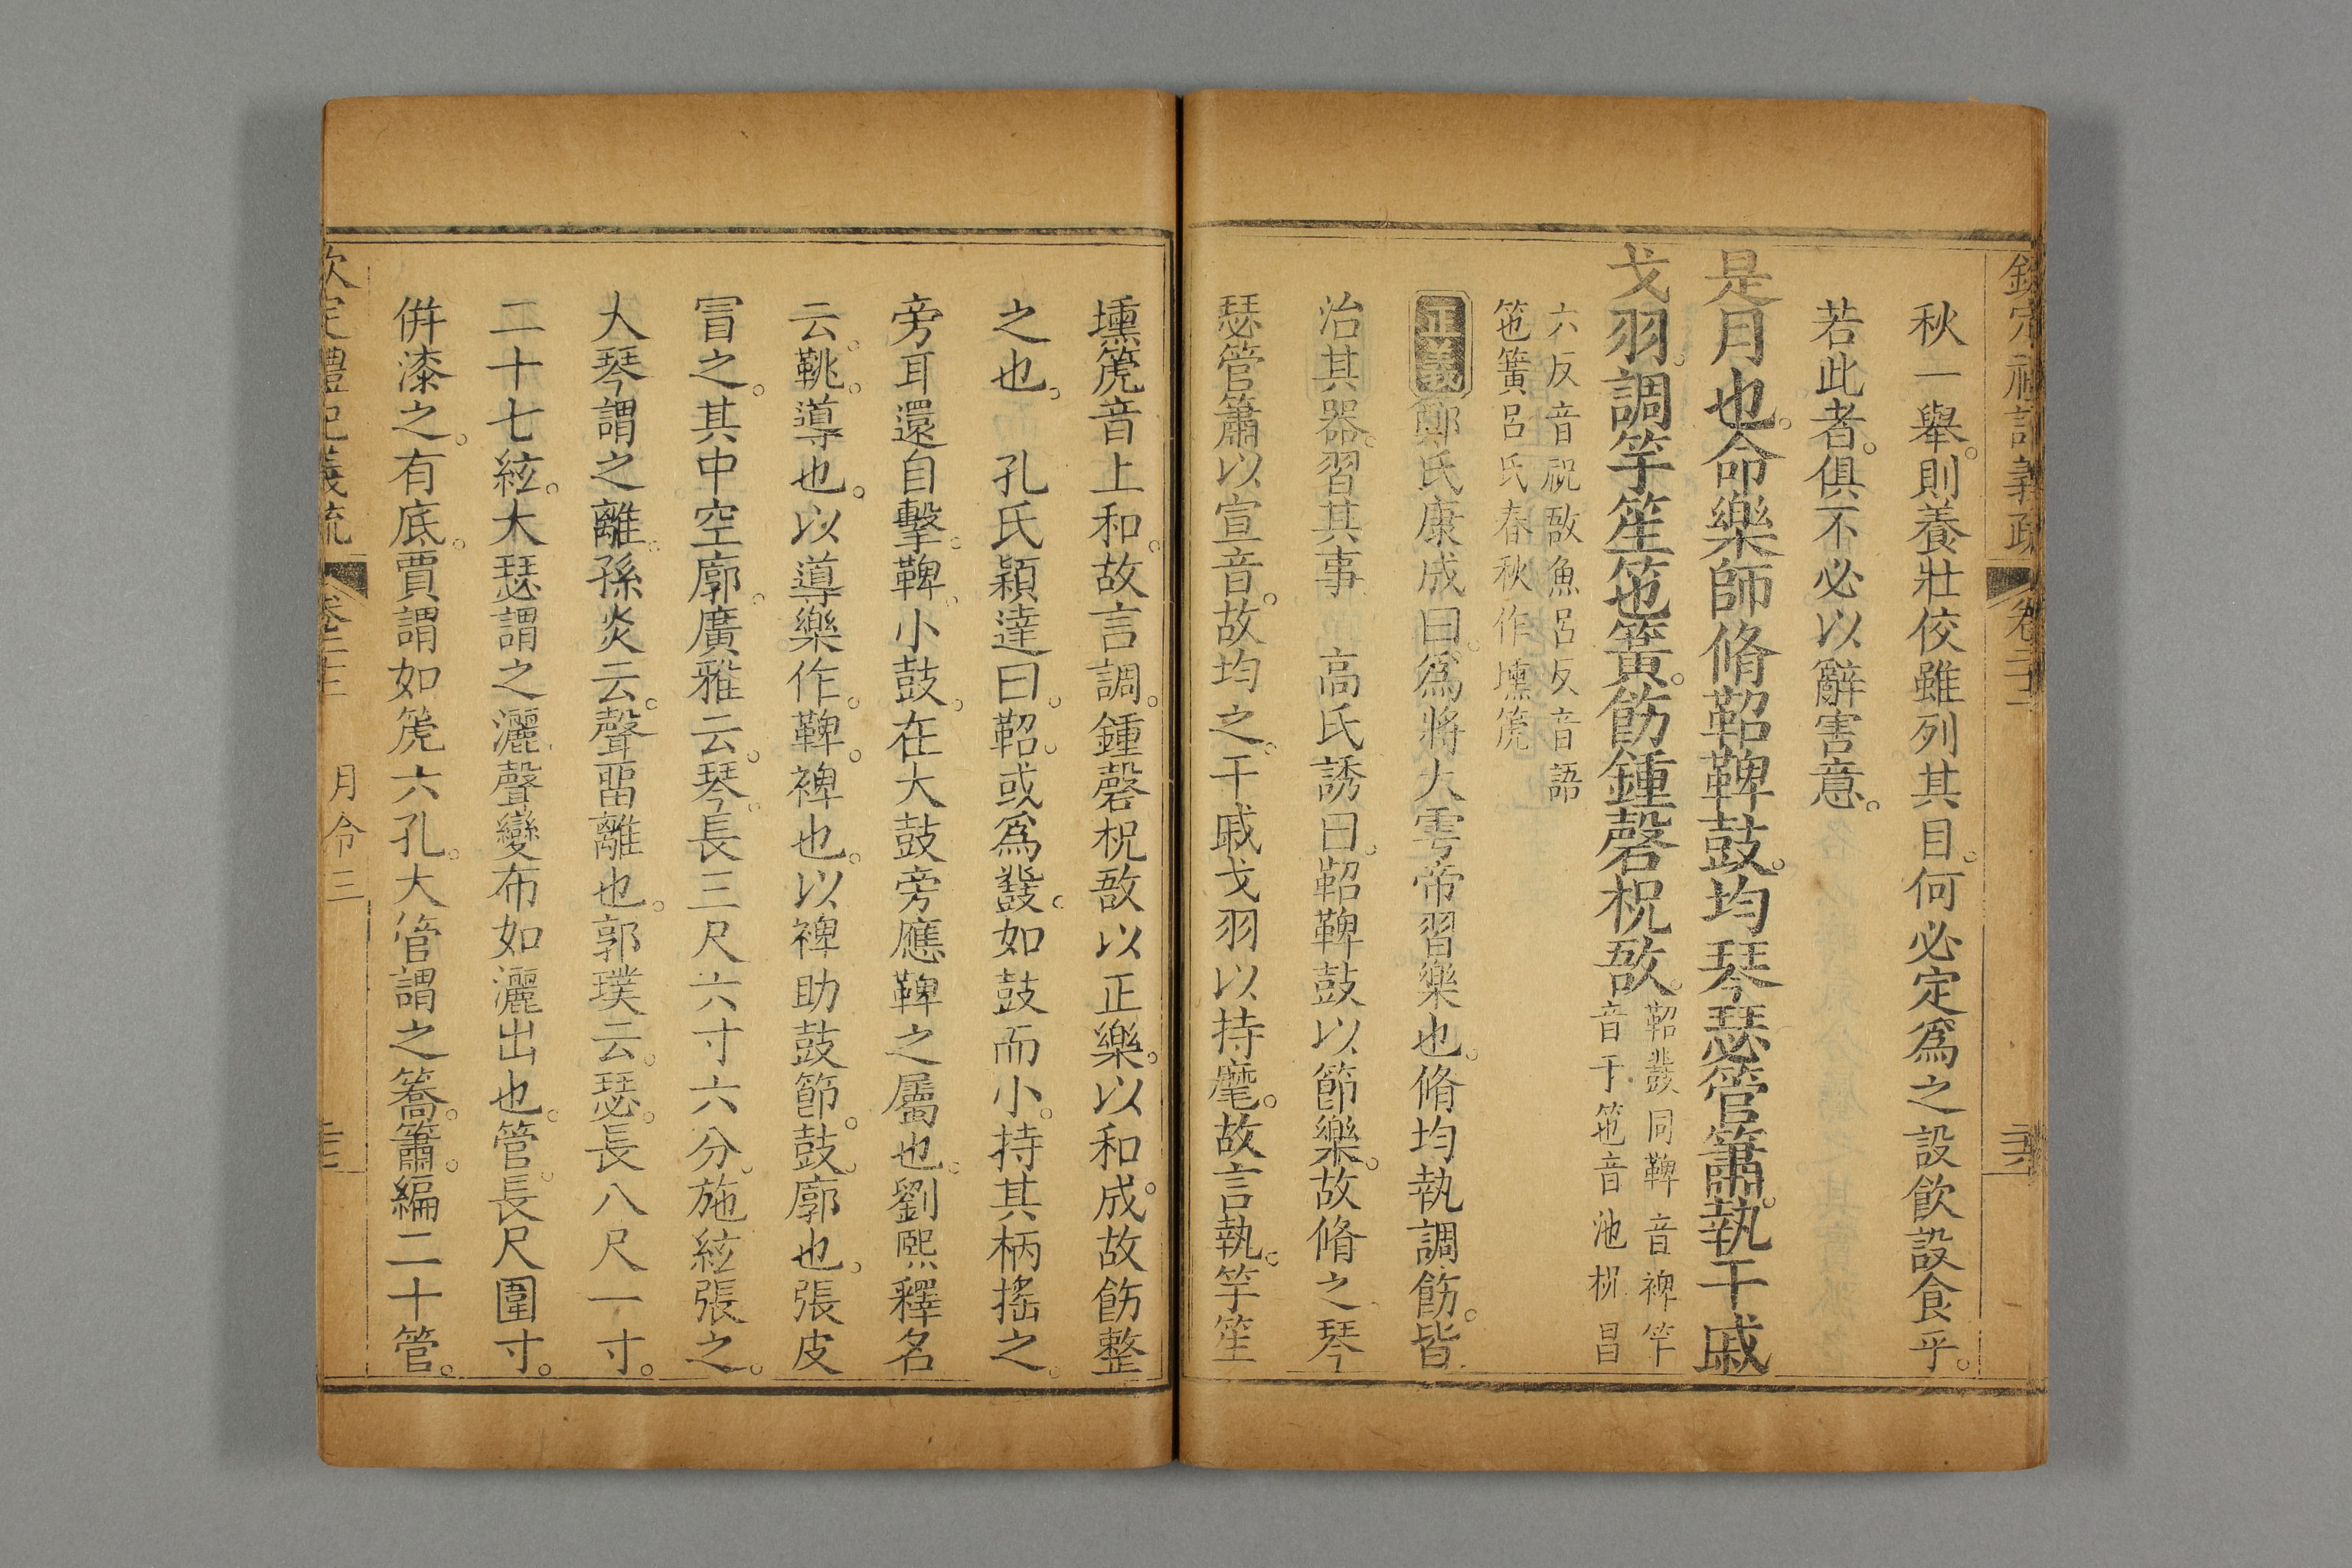 欽定禮記義疏 卷二十二
秋一舉。則養壯佼雖列其目。何必定爲之設飲設食乎。
若此者。俱不必以辭害意。
是月也。命樂師脩鞀鞞鼓。均琴瑟管簫。執干戚
戈羽。調竽笙竾簧。飭鍾磬柷敔。鞀鼗同鞞音裨竽
音于竾音池柷昌
六反音祝敔魚呂反音語
竾簧呂氏春秋作壎箎
正義鄭氏康成曰。爲將大雩帝習樂也。脩均執調飭。皆
治其器。習其事 高氏誘曰。鞀鞞鼓以節樂。故脩之琴
瑟管簫以宣音。故均之。干戚戈羽以持麾。故言執。竽笙
壎箎音上和。故言調。鍾磬柷敔以正樂。以和成。故飭整
之也。 孔氏穎達曰。鞀。或爲鼗。如鼓而小。持其柄搖之。
旁耳還自擊。鞞。小鼓。在大鼓旁應鞞之屬也。劉熙釋名
云。鞉。導也。以導樂作。鞞。裨也。以裨助鼓節。鼓。廓也。張皮
冒之。其中空廓。廣雅云。琴。長三尺六寸六分。施絃張之。
大琴謂之離。孫炎云。聲畱離也。郭璞云。瑟。長八尺一寸。
二十七絃。大瑟謂之灑。聲變布如灑出也。管。長尺圍寸。
倂漆之。有底。賈謂如箎六孔。大管謂之簥。簫。編二十管。
欽定禮記義疏 卷二十二 月令三